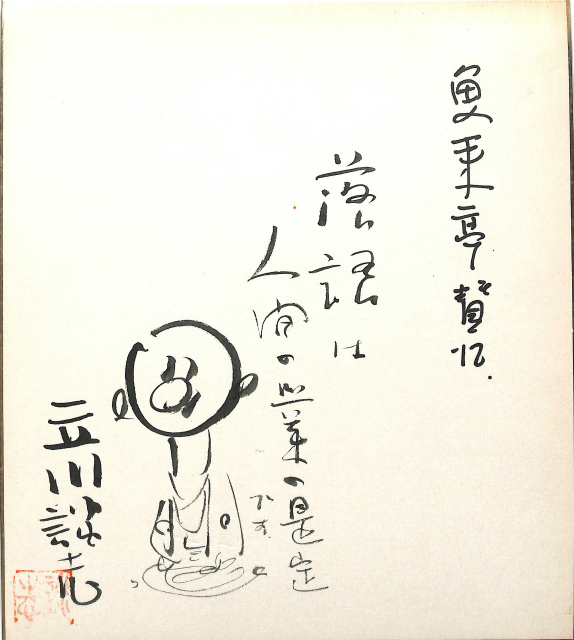 魚来亭賛江.
落語は
人間の業の肯定
です.
立川談志